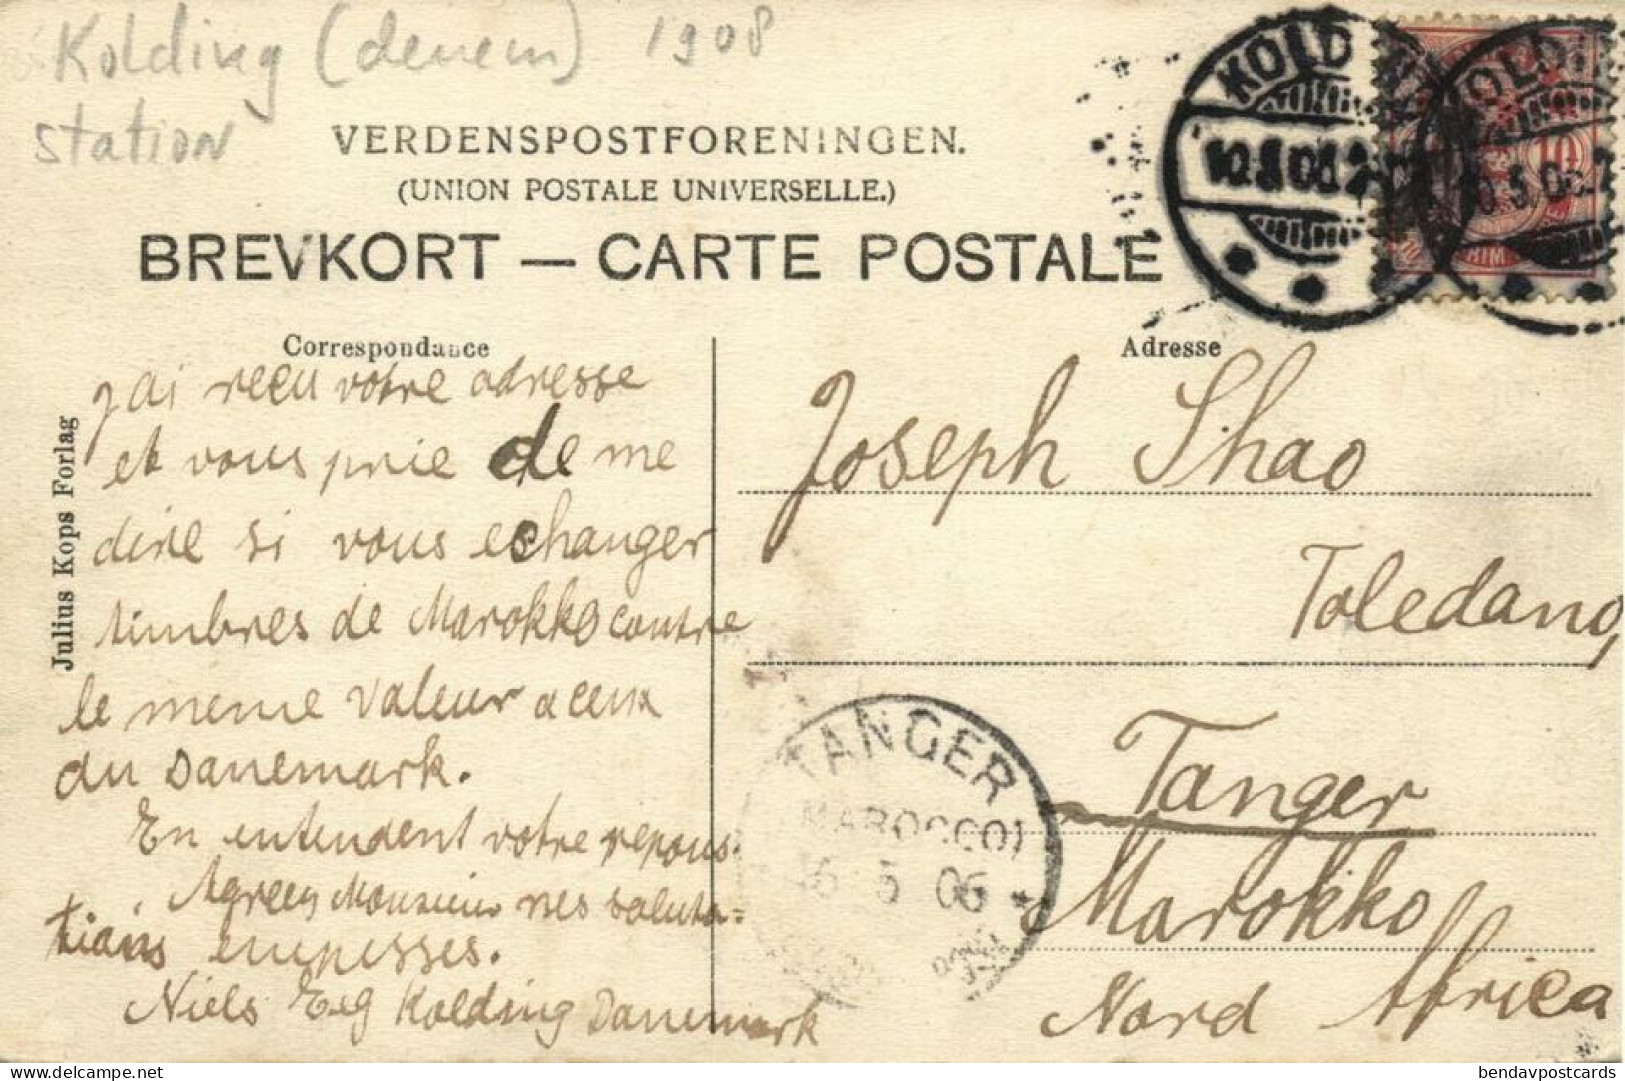 Kolding (denem) 1908
station
VERDENSPOSTFORENINGEN.
(UNION POSTALE UNIVERSELLE.)
BREVKORT — CARTE POSTALE
KOLDING
10
Correspondance
Adresse
Julius Kops Forlag
j'ai recu votre adresse
et vous prie de me
dire si vous echanger
timbres de Marokko contre
le meme valeur a ceux
du Danemark.
En entendent votre repons.
Agreez Monsieur mes saluta=
tians empresses.
Niels Eeg Kolding Danemark
Joseph Shao
Toledano,
Tanger
Marokko
Nord Africa
TANGER
MAROCCO)
5 06
bendavpostcards